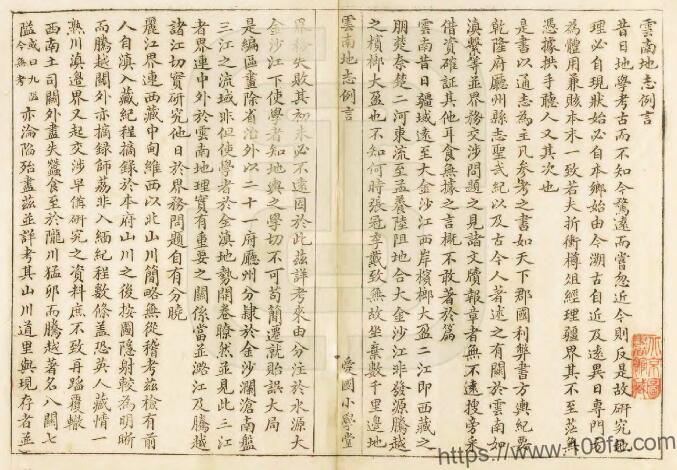 雲南地志例言
昔日地學考古而不知今騖遠而嘗忽近今則反是故研究地
理必自現狀始必自本鄉始由今溯古自近及遠異日專門
為體用兼賅本末一致若夫折衝樽俎經理疆界其不至茫無
憑據拱手聽人又其次也
是書以通志為主凡參考之書如天下郡國利弊書方輿紀要
乾隆府廳州縣志聖武紀以及古今人著述之有關於雲南如
滇繫等並界務交涉問題之見諸文牘報章者無不遠搜旁采
借資確証其他耳食無據之言概不敢著於篇
雲南昔日疆域遠至大金沙江西岸檳榔大盈二江即西藏之
朋楚奈楚二河東流至孟養陸阻地合大金沙江非發源騰越
之檳榔大盈也不知何時張冠李戴致無故坐棄數千里邊地
雲南地志例言
愛國小學堂
界務失敗其初未必不遠因於此茲詳考來由分注於水源大
金沙江下使學者知地輿之學切不可苟簡遷就貽誤大局
是編區畫除省治外以二十一府廳州分隸於金沙瀾滄南盤
三江之流域非但使學者於全滇地勢開卷瞭然並見此三江
者界連中外於雲南地理實有重要之關係當並潞江及騰越
諸江切實研究他日於界務問題自有分曉
麗江界連西藏中甸維西以北山川簡略無從稽考茲檢有前
人自滇入藏紀程摘錄於本府山川之後按圖隱射較為明晰
而騰越關外亦摘錄師荔非入緬紀程數條蓋恐英人藏情一
熟川滇邊界又起交涉早備研究之資料庶不致再蹈覆轍
西南土司關外盡失蠶食至於隴川猛卯而騰越著名八關七
隘或曰九隘今無考亦淪陷殆盡茲並詳考其山川道里與現存者並
https://www.100fe.com